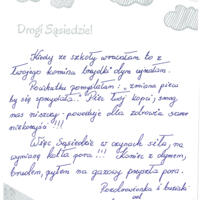 Drogi Sąsiedzie!
Kiedy ze szkoły wracałam to z
Twojego komina brzydki dym czułam.
Pomyślałam: „zmiana pieca
by się przydała." Piec Twój kopci, smog
nas niszczy - powoduje dla zdrowia same
niekorzyści!!!
Więc, Sąsiedzie w czynach siła, na
wymianę kotła pora!!! Koniec z dymem,
brudem, pyłem na gazowy przyszła pora.
Pozdrowionka i buziaki